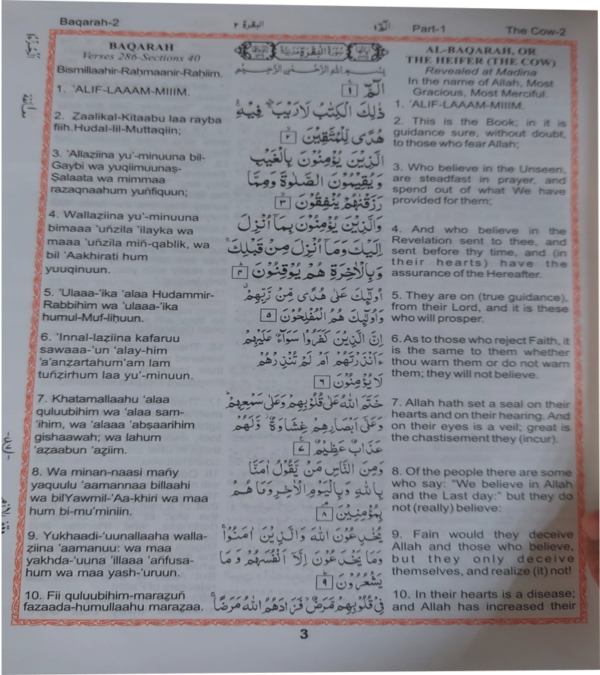 Baqarah-2
البقرة ٢
الٓمّٓ ١
Part-1
The Cow-2
BAQARAH
Verses 286-Sections 40
Bismillaahir-Rahmaanir-Rahiim.
1. 'ALIF-LAAAM-MIIIM.
2. Zaalikal-Kitaabu laa rayba
fiih.Hudal-lil-Muttaqiin;
3. 'Allaziina yu'-minuuna bil-
Gaybi wa yuqiimuunaṣ-
Ṣalaata wa mimmaa
razaqnaahum yuñfiquun;
4. Wallaziina yu'-minuuna
bimaaa 'uñzila 'ilayka wa
maaa 'uñzila miñ-qablik, wa
bil 'Aakhirati hum
yuuqinuun.
5. 'Ulaaa-'ika 'alaa Hudammir-
Rabbihim wa 'ulaaa-'ika
humul-Muf-liḥuun.
6. 'Innal-laziina kafaruu
sawaaa-'un 'alay-him
'a'anzartahum'am lam
tuñzirhum laa yu'-minuun.
7. Khatamallaahu 'alaa
quluubihim wa 'alaa sam-
'ihim, wa 'alaaa 'abṣaarihim
gishaawah; wa lahum
'azaabun 'aziim.
8. Wa minan-naasi mañy
yaquulu 'aamannaa billaahi
wa bilYawmil-'Aa-khiri wa maa
hum bi-mu'miniin.
9. Yukhaadi-'uunallaaha walla-
ziina 'aamanuu: wa maa
yakhda-'uuna 'illaaa 'añfusa-
hum wa maa yash-'uruun.
10. Fii quluubihim-marazuñ
fazaada-humullaahu marazaa.
سورة البقرة مدنية
بسم الله الرحمن الرحيم
الٓمّٓ ١
ذٰلِكَ الْكِتٰبُ لَارَيْبَ ۛ فِيْهِ ۛ
هُدًى لِّلْمُتَّقِيْنَ ٢
الَّذِيْنَ يُؤْمِنُوْنَ بِالْغَيْبِ
وَيُقِيْمُوْنَ الصَّلٰوةَ وَمِمَّا
رَزَقْنٰهُمْ يُنْفِقُوْنَ ٣
وَالَّذِيْنَ يُؤْمِنُوْنَ بِمَآ اُنْزِلَ
اِلَيْكَ وَمَآ اُنْزِلَ مِنْ قَبْلِكَ ۚ
وَبِالْاٰخِرَةِ هُمْ يُوْقِنُوْنَ ٤
اُولٰٓئِكَ عَلٰى هُدًى مِّنْ رَّبِّهِمْ ۙ
وَاُولٰٓئِكَ هُمُ الْمُفْلِحُوْنَ ٥
اِنَّ الَّذِيْنَ كَفَرُوْا سَوَآءٌ عَلَيْهِمْ
ءَاَنْذَرْتَهُمْ اَمْ لَمْ تُنْذِرْهُمْ
لَا يُؤْمِنُوْنَ ٦
خَتَمَ اللّٰهُ عَلٰى قُلُوْبِهِمْ وَعَلٰى سَمْعِهِمْ ؕ
وَعَلٰٓى اَبْصَارِهِمْ غِشَاوَةٌ ۫ وَّلَهُمْ
عَذَابٌ عَظِيْمٌ ٧
وَمِنَ النَّاسِ مَنْ يَّقُوْلُ اٰمَنَّا
بِاللّٰهِ وَبِالْيَوْمِ الْاٰخِرِ وَمَا هُمْ
بِمُؤْمِنِيْنَ ٨
يُخٰدِعُوْنَ اللّٰهَ وَالَّذِيْنَ اٰمَنُوْا ۚ
وَمَا يَخْدَعُوْنَ اِلَّآ اَنْفُسَهُمْ وَمَا
يَشْعُرُوْنَ ٩
فِيْ قُلُوْبِهِمْ مَّرَضٌ ۙ فَزَادَهُمُ اللّٰهُ مَرَضًا ۚ
AL-BAQARAH, OR
THE HEIFER (THE COW)
Revealed at Madina
In the name of Allah, Most
Gracious, Most Merciful.
1. 'ALIF-LAAAM-MIIIM.
2. This is the Book; in it is
guidance sure, without doubt,
to those who fear Allah;
3. Who believe in the Unseen,
are steadfast in prayer, and
spend out of what We have
provided for them;
4. And who believe in the
Revelation sent to thee, and
sent before thy time, and (in
their hearts) have the
assurance of the Hereafter.
5. They are on (true guidance),
from their Lord, and it is these
who will prosper.
6. As to those who reject Faith, it
is the same to them whether
thou warn them or do not warn
them; they will not believe.
7. Allah hath set a seal on their
hearts and on their hearing. And
on their eyes is a veil; great is
the chastisement they (incur).
8. Of the people there are some
who say: "We believe in Allah
and the Last day:" but they do
not (really) believe:
9. Fain would they deceive
Allah and those who believe,
but they only deceive
themselves, and realize (it) not!
10. In their hearts is a disease;
and Allah has increased their
3